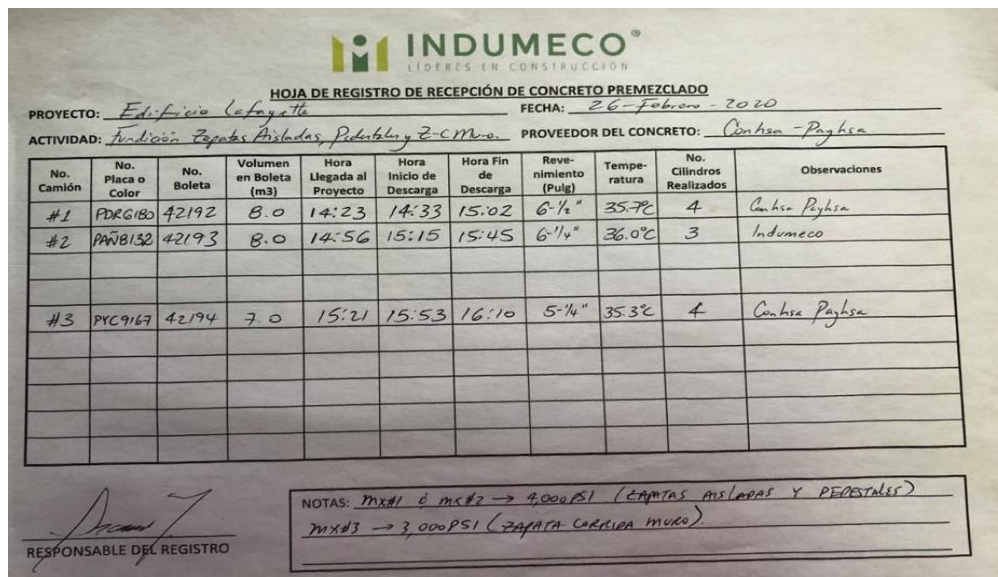 INDUMECO®
LÍDERES EN CONSTRUCCIÓN
HOJA DE REGISTRO DE RECEPCIÓN DE CONCRETO PREMEZCLADO
PROYECTO: Edificio Lafayette FECHA: 26-Febrero-2020
ACTIVIDAD: Fundición Zapatas Aisladas, Pedestales y Z-C Muro. PROVEEDOR DEL CONCRETO: Conhsa-Payhsa
No. Camión No. Placa o Color No. Boleta Volumen en Boleta (m3) Hora Llegada al Proyecto Hora Inicio de Descarga Hora Fin de Descarga Reve-nimiento (Pulg) Tempe-ratura No. Cilindros Realizados Observaciones
#1 PDRG180 42192 8.0 14:23 14:33 15:02 6-1/2" 35.7°C 4 Conhsa Payhsa
#2 PAÑ8132 42193 8.0 14:56 15:15 15:45 6-1/4" 36.0°C 3 Indumeco
#3 PYC9167 42194 7.0 15:21 15:53 16:10 5-1/4" 35.3°C 4 Conhsa Payhsa
NOTAS: MX#1 & MX#2 → 4,000 PSI (ZAPATAS AISLADAS Y PEDESTALES)
MX#3 → 3,000 PSI (ZAPATA CORRIDA MURO).
RESPONSABLE DEL REGISTRO